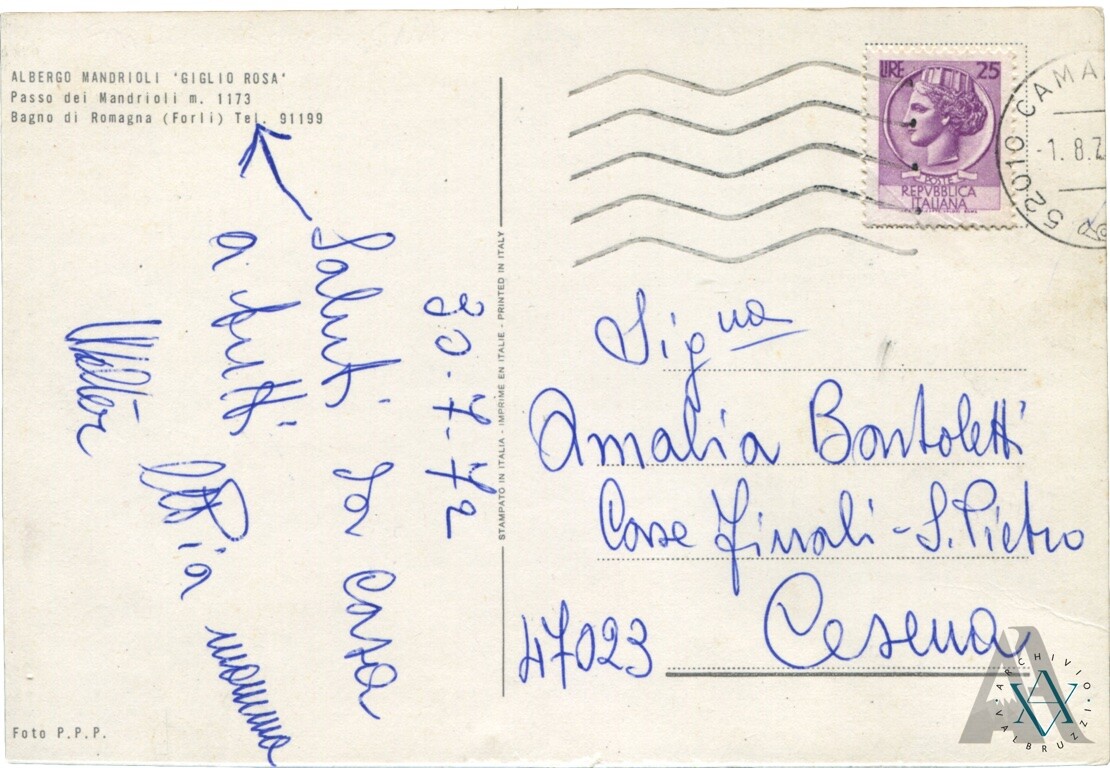 ALBERGO MANDRIOLI 'GIGLIO ROSA'
Passo dei Mandrioli m. 1173
Bagno di Romagna (Forlì) Tel. 91199
30-7-72
Saluti da casa
a tutti
mamma
Walter
STAMPATO IN ITALIA - IMPRIMÉ EN ITALIE - PRINTED IN ITALY
Foto P.P.P.
LIRE 25
POSTE
REPVBBLICA
ITALIANA
52010 CAMA
-1.8.7
Sigᶰᵃ
Amalia Bartoletti
Case Finali - S. Pietro
47023 Cesena
ARCHIVIO
VALBRUZZI